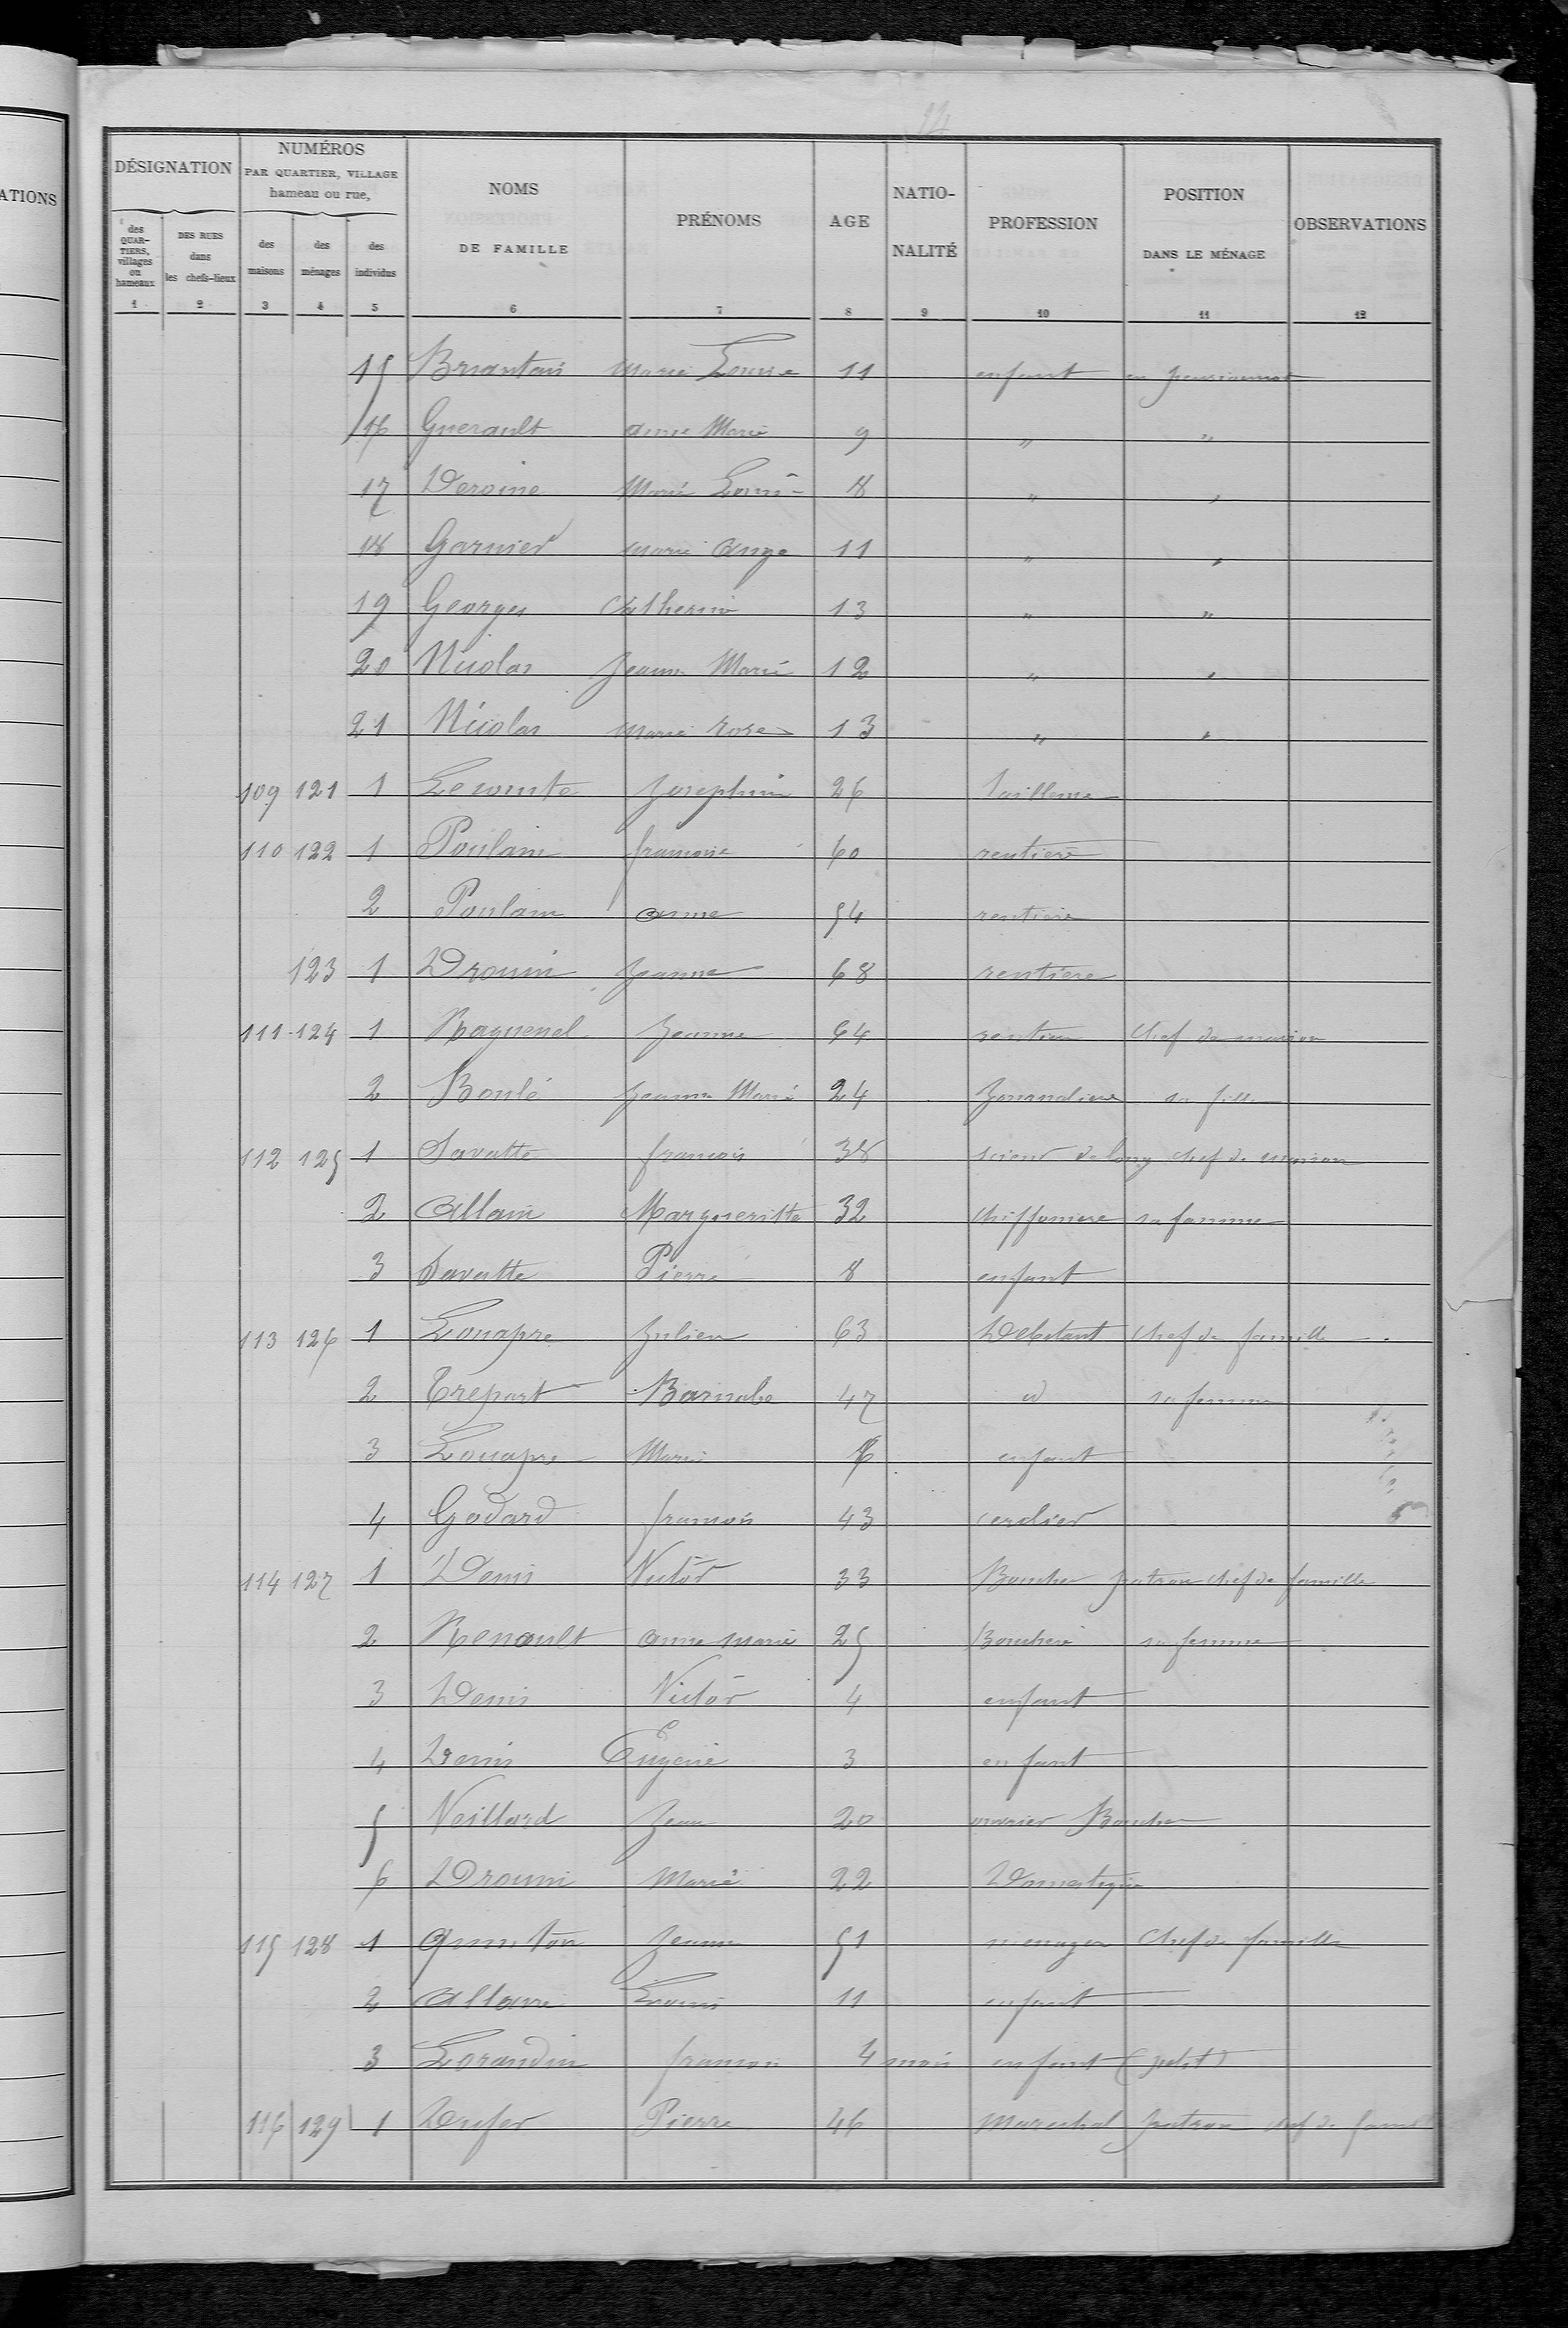 ATIONS
14
DÉSIGNATION
NUMÉROS
PAR QUARTIER, VILLAGE
hameau ou rue,
NOMS
DE FAMILLE
PRÉNOMS
AGE
NATIO-
NALITÉ
PROFESSION
POSITION
DANS LE MÉNAGE
OBSERVATIONS
des QUAR-TIERS, villages ou hameaux
DES RUES dans les chefs-lieux
des maisons
des ménages
des individus
1 2 3 4 5 6 7 8 9 10 11 12
15 Briantais Marie Louise 11 enfant en pensionnat
16 Guerault anne Marie 9 " "
17 Deroine Marie Louise 8 " "
18 Garnier Marie Ange 11 " "
19 Georges Catherine 13 " "
20 Nicolas Jeanne Marie 12 " "
21 Nicolas Marie rose 13 " "
109 121 1 Lecomte Josephine 26 tailleuse
110 122 1 Poulain francoise 60 rentiere
2 Poulain anne 54 rentiere
123 1 Drouin Jeanne 68 rentiere
111 124 1 Raguenel Jeanne 64 rentiere Chef de maison
2 Boulé Jeanne Marie 24 Journaliere sa fille
112 125 1 Savatte francois 38 scieur de long chef de maison
2 Allain Margueritte 32 chiffoniere sa femme
3 Savatte Pierre 8 enfant
113 126 1 Louapre Julien 63 Debitant chef de famille
2 Trepart Barnabe 47 id sa femme
3 Louapre Marie enfant
4 Godard francois 43 cordier
114 127 1 Denis Victor 33 Boucher patron chef de famille
2 Renault anne marie 25 Bouchere sa femme
3 Denis Victor 4 enfant
4 Denis Eugenie 3 enfant
5 Veillard Jean 20 ouvrier Boucher
6 Drouin Marie 22 Domestique
115 128 1 Quinton Jeanne 51 menagere Chef de famille
2 Allaire Louis 11 enfant
3 Lorandin francois 4 mois enfant (petit)
116 129 1 Dufer Pierre 46 Marechal patron chef de famil